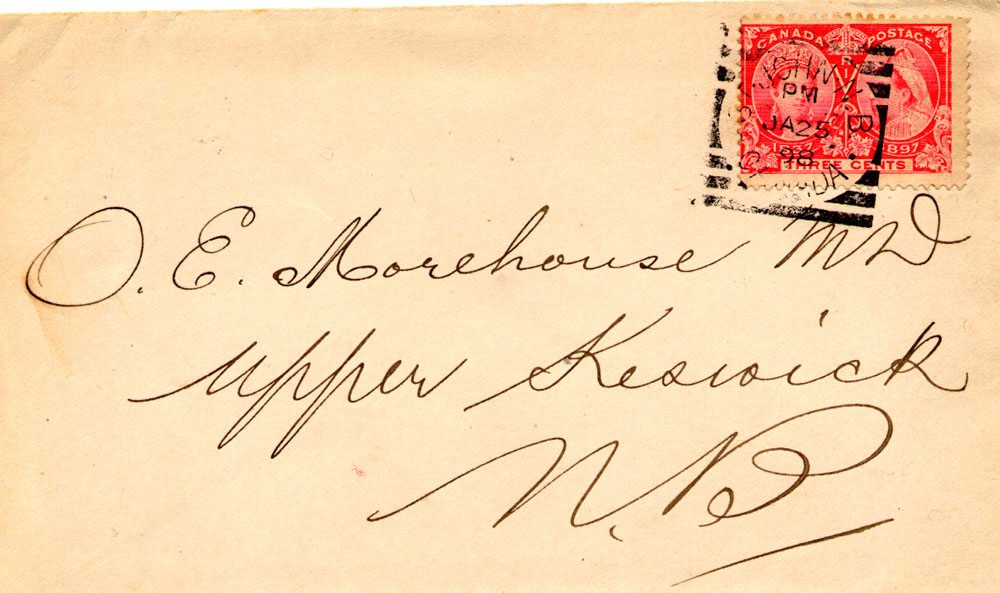 CANADA POSTAGE
1837 1897
THREE CENTS
ST. JOHN N.B.
PM
JA 25
98
CANADA
O. E. Morehouse MD
Upper Keswick
N.B